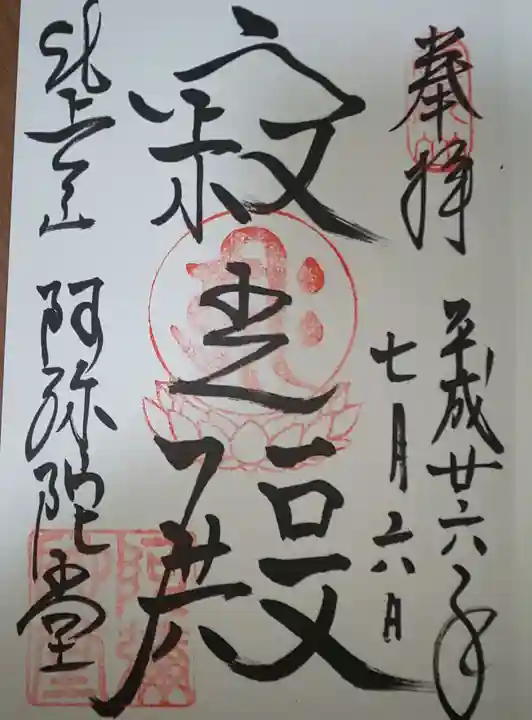 奉拝 平成廿六年
七月二六日
寂光殿
阿弥陀堂